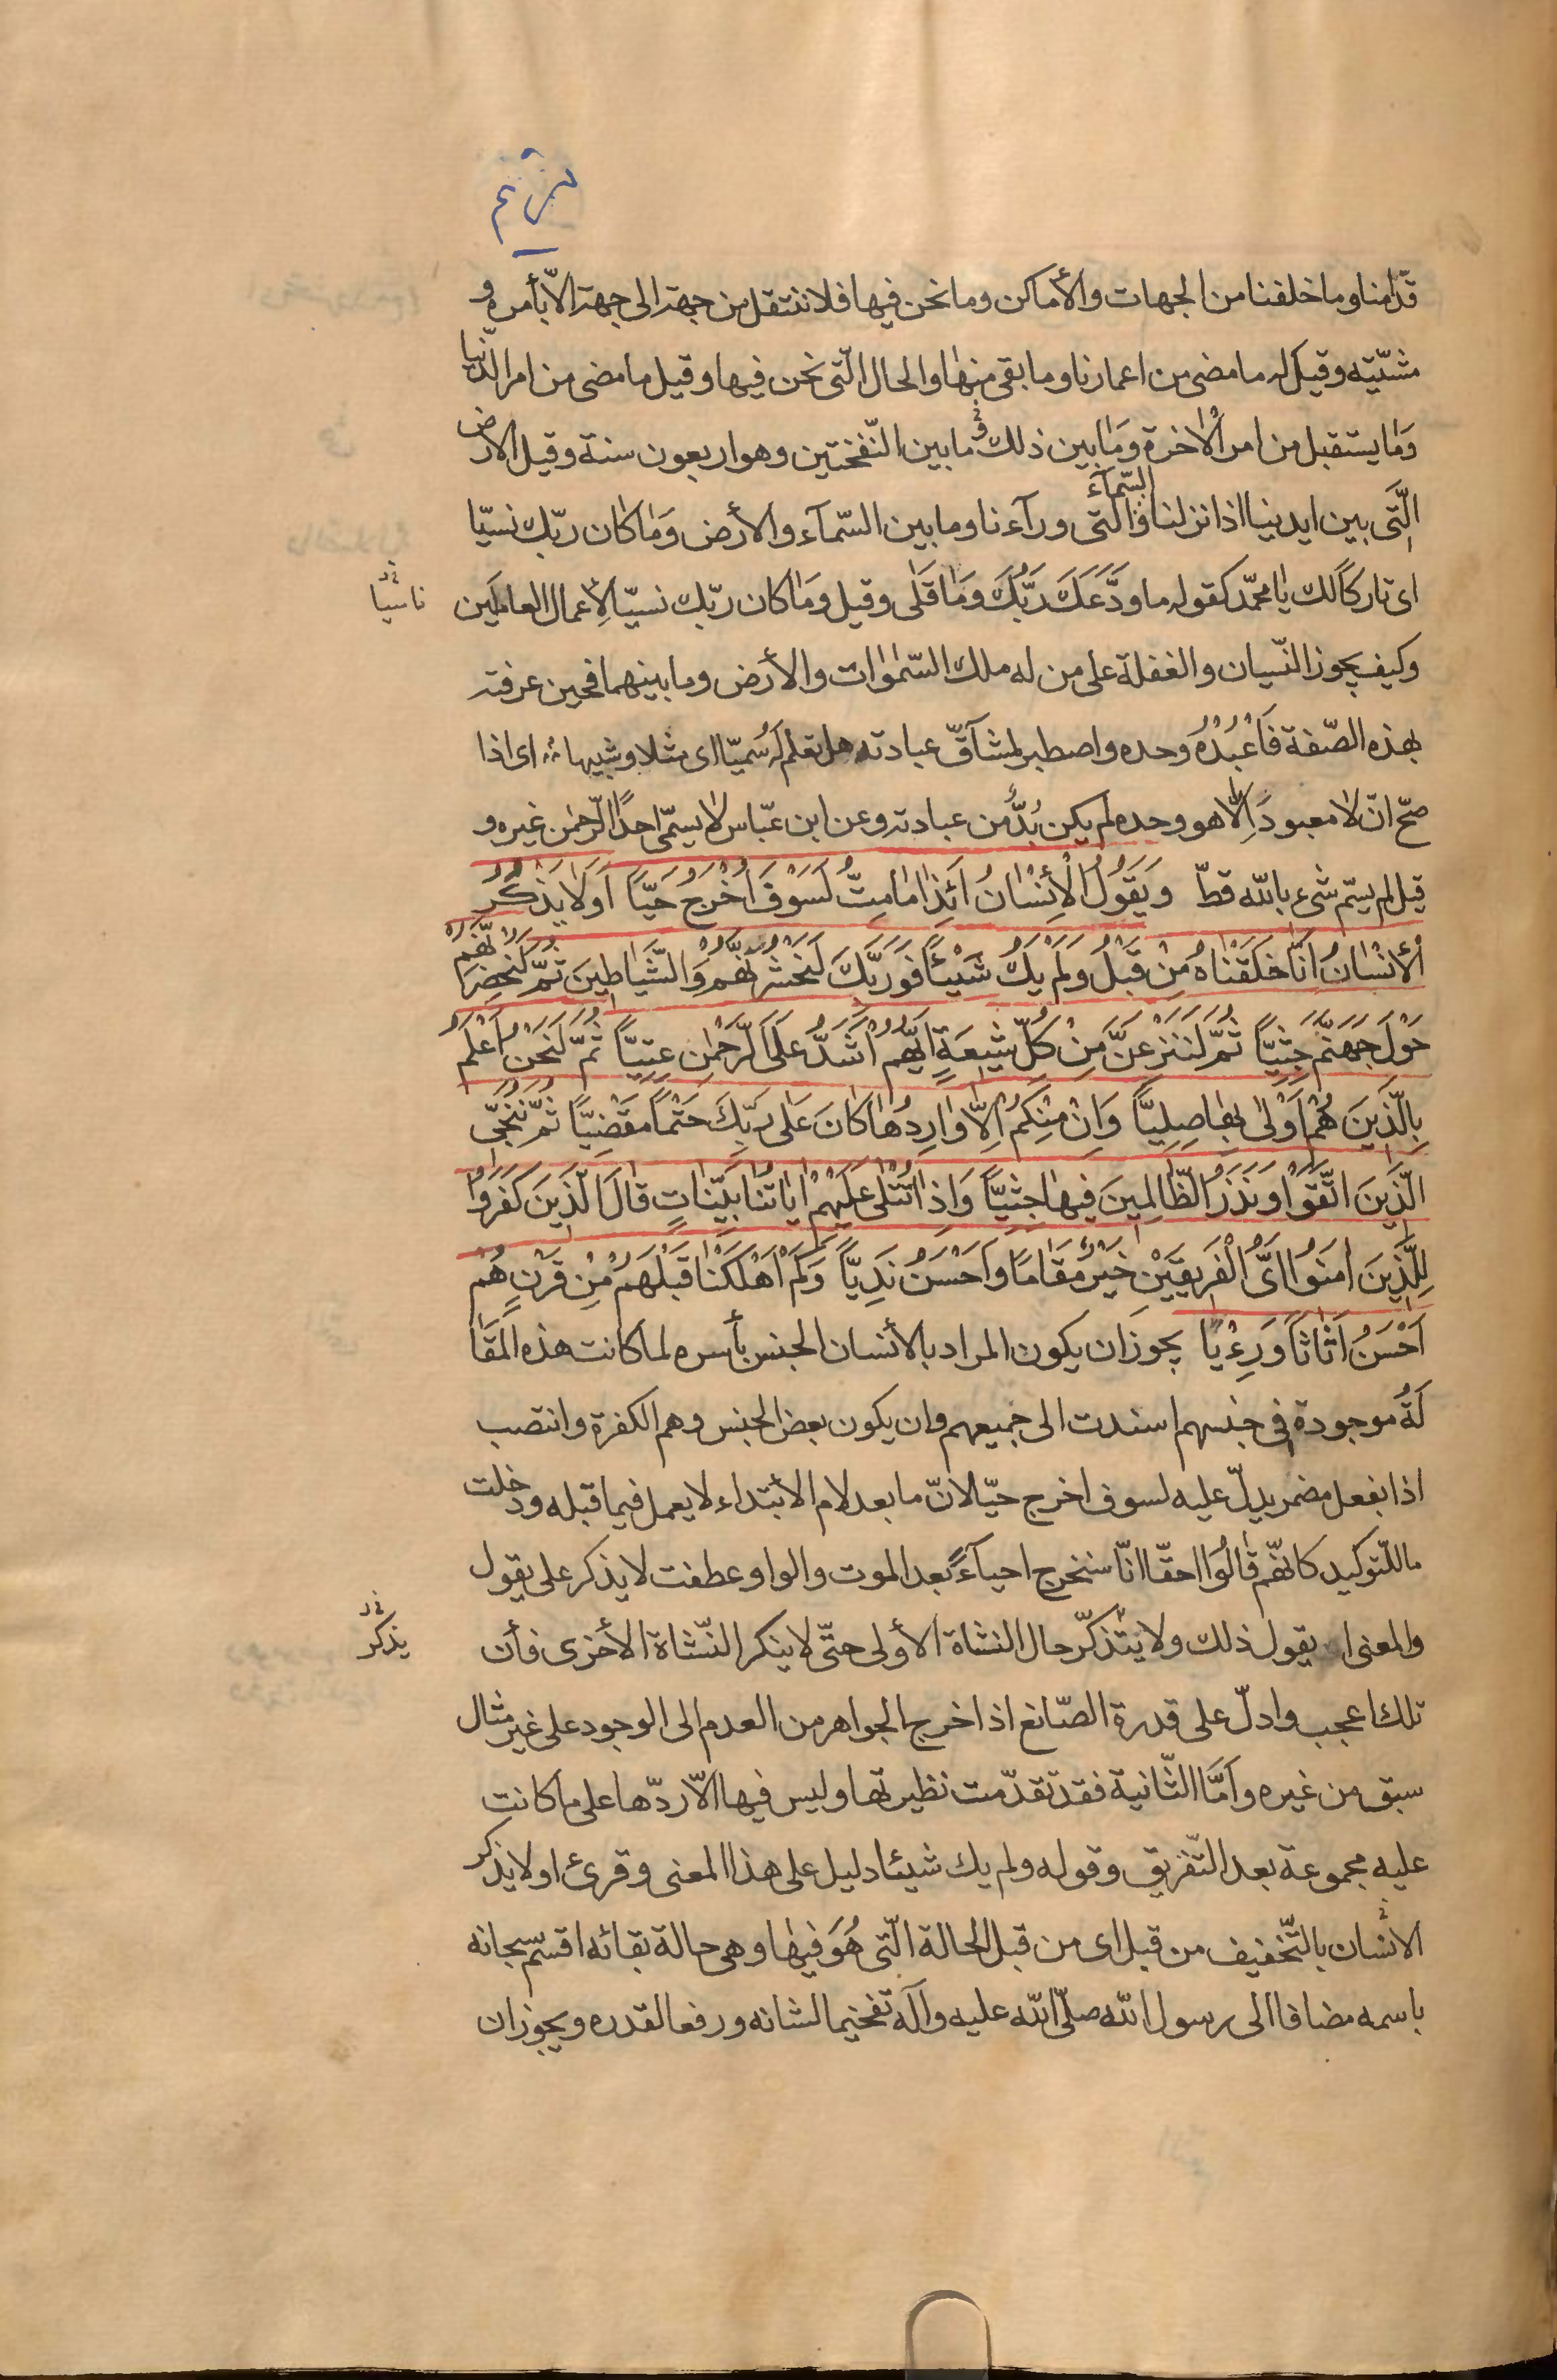 مريم
قدّامنا وما خلفنا من الجهات والأماكن وما نحن فيها فلا ننتقل من جهة الى جهة الّا بأمره و
مشيّته وقيل له ما مضى من اعمارنا وما بقى منها والحال الّتى نحن فيها وقيل ما مضى من امر الدّنيا
وَما يستقبل من امر الاٰخرة وَمٰا بين ذلك و ما بين النّفختين وهو اربعون سنة وقيل الارض
الَّتى بين ايدينا اذا نزلنا والسّمآء الّتى ورآءنا وما بين السّمآء والأرض وَمٰا كٰان ربّك نسيّا
اى تاركًا لك يا محمّد كقوله ما ودَّعَكَ رَبُّكَ وَمٰا قَلٰى وقيل وَمٰا كان ربّك نسيّا لِأعمال العاملين
ناسيا
وكيف يجوز النّسيان والغفلة على من له ملك السّمٰوات والأرض وما بينهما فحين عرفته
بهذه الصّفة فَاعْبُدْهُ وحده واصطبر لمشآقّ عبادته هل تعلم له سَميّا اى مثلا وشبيها اى اذا
صحّ انّ لا معبود اِلّا هو وحده لم يكن بُدٌّ من عبادته وعن ابن عبّاس لا يسمّى احدًا الرّحمٰن غيره و
قيل لم يسّم شىء بالله قطّ وَيَقُولُ الْأِنْسٰانُ اَئِذٰا مٰا مِتُّ لَسَوْفَ اُخْرَجُ حَيّاً اَوَلٰا يَذْكُرُ
الْأِنْسٰانُ اَنّٰا خَلَقْنٰاهُ مِنْ قَبْلُ وَلَمْ يَكُ شَيْئاً فَوَرَبِّكَ لَنَحْشُرَنَّهُمْ وَالشَّيٰاطِينَ ثُمَّ لَنُحْضِرَنَّهُمْ
حَوْلَ جَهَنَّمَ جِثِيّاً ثُمَّ لَنَنْزِعَنَّ مِنْ كُلِّ شِيعَةٍ اَيُّهُمْ اَشَدُّ عَلَى الرَّحْمٰنِ عِتِيّاً ثُمَّ لَنَحْنُ اَعْلَمُ
بِالَّذِينَ هُمْ اَوْلٰى بِهٰا صِلِيّاً وَاِنْ مِنْكُمْ اِلّٰا وٰارِدُهٰا كٰانَ عَلٰى رَبِّكَ حَتْماً مَقْضِيّاً ثُمَّ نُنَجِّى
الَّذِينَ اتَّقَوْا وَنَذَرُ الظّٰالِمِينَ فِيهٰا جِثِيّاً وَاِذٰا تُتْلٰى عَلَيْهِمْ اٰيٰاتُنٰا بَيِّنٰاتٍ قٰالَ الَّذِينَ كَفَرُوا
لِلَّذِينَ اٰمَنُوا اَىُّ الْفَرِيقَيْنِ خَيْرٌ مَقٰامًا وَاَحْسَنُ نَدِيّاً وَكَمْ اَهْلَكْنٰا قَبْلَهُمْ مِنْ قَرْنٍ هُمْ
اَحْسَنُ اَثٰاثاً وَرِءْيًا يجوز ان يكون المراد بالأنسان الجنس بأسره لما كانت هذه المَقٰا
لَةُ موجودة فى جنسهم اسندت الى جميعهم وان يكون بعض الجنس وهم الكفرة وانتصب
اذا بفعل مضمر يدلّ عليه لسوف اخرج حيّا لانّ ما بعد لام الأبتداء لا يعمل فيما قبله ودخلت
ما للتّوكيد كانّهم قٰالُوا احقّا انّا سنخرج احيآءً بعد الموت والواو عطفت لا يذكر على يقول
والمعنى ايقول ذلك ولا يتذكّر حال النشاة الأولى حتّى لا ينكر النّشاة الأخرى فأن
يذكر
تلك اعجب وادلّ على قدرة الصّانع اذ اخرج الجواهر من العدم الى الوجود على غير مثال
سبق من غيره وامَّا الثّانية فقد تقدّمت نظيرتها وليس فيها الّا ردّها على ما كانت
عليه مجموعة بعد التّفريق وقوله ولم يك شيئا دليل على هذا المعنى وقرئ اولا يذكر
الانسان بالتّخفيف من قبل اى من قبل الحالة الّتى هُوَ فيهٰا وهى حالة بقائه اقسم سبحانه
باسمه مضافا الى رسول الله صلّى الله عليه وآله تفخيما لشانه ورفعا لقدره ويجوز ان